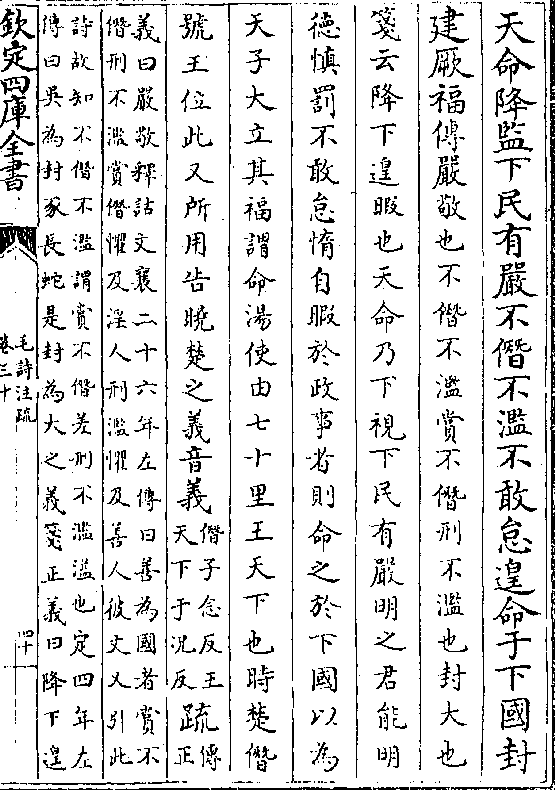 天命降監下民有嚴不僭不濫不敢怠遑命于下國封
建厥福傳嚴敬也不僭不濫賞不僭刑不濫也封大也
箋云降下遑暇也天命乃下視下民有嚴明之君能明
德慎罰不敢怠惰自暇於政事者則命之於下國以為
天子大立其福謂命湯使由七十里王天下也時楚僭
號王位此又所用告曉楚之義音義
僭子念反王
天下于況反
疏
傳
正
義曰嚴敬釋詁文襄二十六年左傳曰善為國者賞不
僭刑不濫賞僭懼及淫人刑濫懼及善人彼文又引此
詩故知不僭不濫謂賞不僭差刑不濫溢也定四年左
傳曰吳為封豕長蛇是封為大之義箋正義曰降下遑
欽定四庫全書
毛詩注疏
卷三十
四十